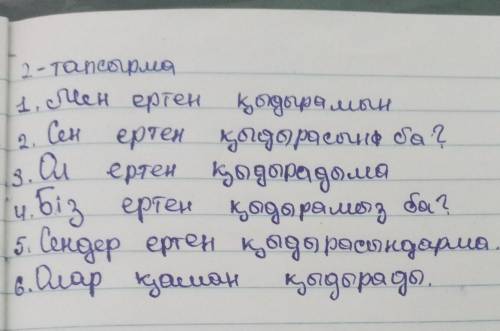 2-тапсырма
1. Мен ертен қыдырамын
2. Сен ертен қыдырасынф ба?
3. Ол ертен қыдырадыма
4. Біз ертен қыдырамыз ба?
5. Сендер ертен қыдырасындарма.
6. Олар қаман қыдырады.